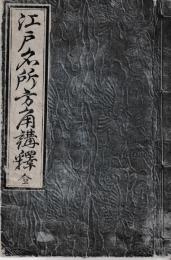 江戸名所方角講釋 全